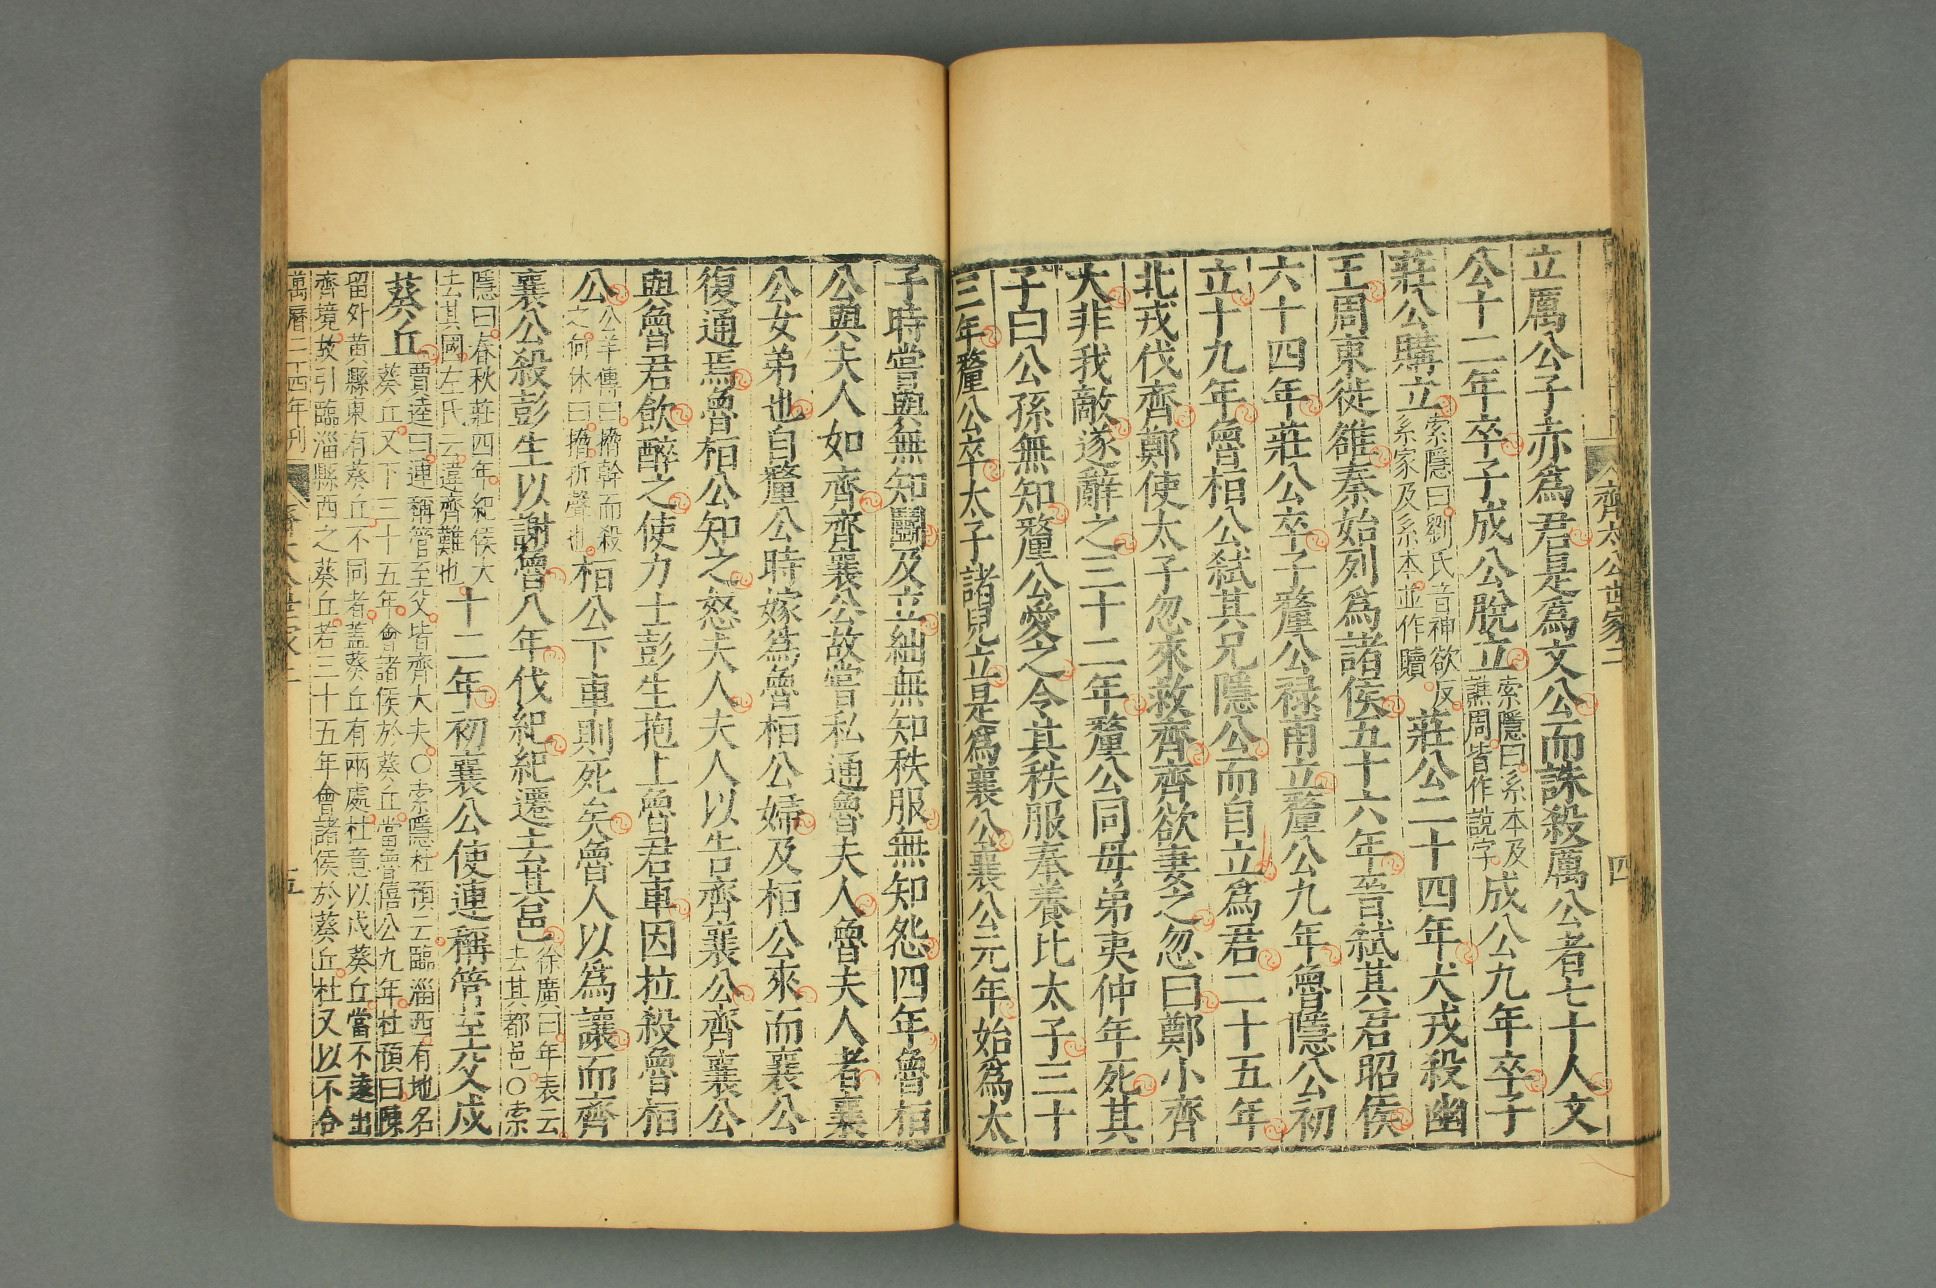 齊太公世家二
四
立厲公子亦爲君是爲文公而誅殺厲公者七十人文
公十二年卒子成公脫立索隱曰系本及譙周皆作說字成公九年卒子
莊公購立索隱曰劉氏音神欲反系家及系本並作贖莊公二十四年犬戎殺幽
王周東徙雒秦始列爲諸侯五十六年晉弑其君昭侯
六十四年莊公卒子釐公祿甫立釐公九年魯隱公初
立十九年魯桓公弑其兄隱公而自立爲君二十五年
北戎伐齊鄭使太子忽來救齊齊欲妻之忽曰鄭小齊
大非我敵遂辭之三十二年釐公同母弟夷仲年死其
子曰公孫無知釐公愛之令其秩服奉養比太子三十
三年釐公卒太子諸兒立是爲襄公襄公元年始爲太
子時嘗與無知鬬及立絀無知秩服無知怨四年魯桓
公與夫人如齊齊襄公故嘗私通魯夫人魯夫人者襄
公女弟也自釐公時嫁爲魯桓公婦及桓公來而襄公
復通焉魯桓公知之怒夫人夫人以告齊襄公齊襄公
與魯君飲醉之使力士彭生抱上魯君車因拉殺魯桓
公公羊傳曰搚幹而殺之何休曰搚折聲也桓公下車則死矣魯人以爲讓而齊
襄公殺彭生以謝魯八年伐紀紀遷去其邑徐廣曰年表云去其都邑○索
隱曰春秋莊四年紀侯大去其國左氏云違齊難也十二年初襄公使連稱管至父戍
葵丘賈逵曰連稱管至父皆齊大夫○索隱杜預云臨淄西有地名葵丘又下三十五年會諸侯於葵丘當魯僖公九年杜預曰陳
留外黄縣東有葵丘不同者蓋葵丘有兩處杜意以戍葵丘當不遠出齊境故引臨淄縣西之葵丘若三十五年會諸侯於葵丘杜又以不合
萬曆二十四年刊
齊太公世家二
五